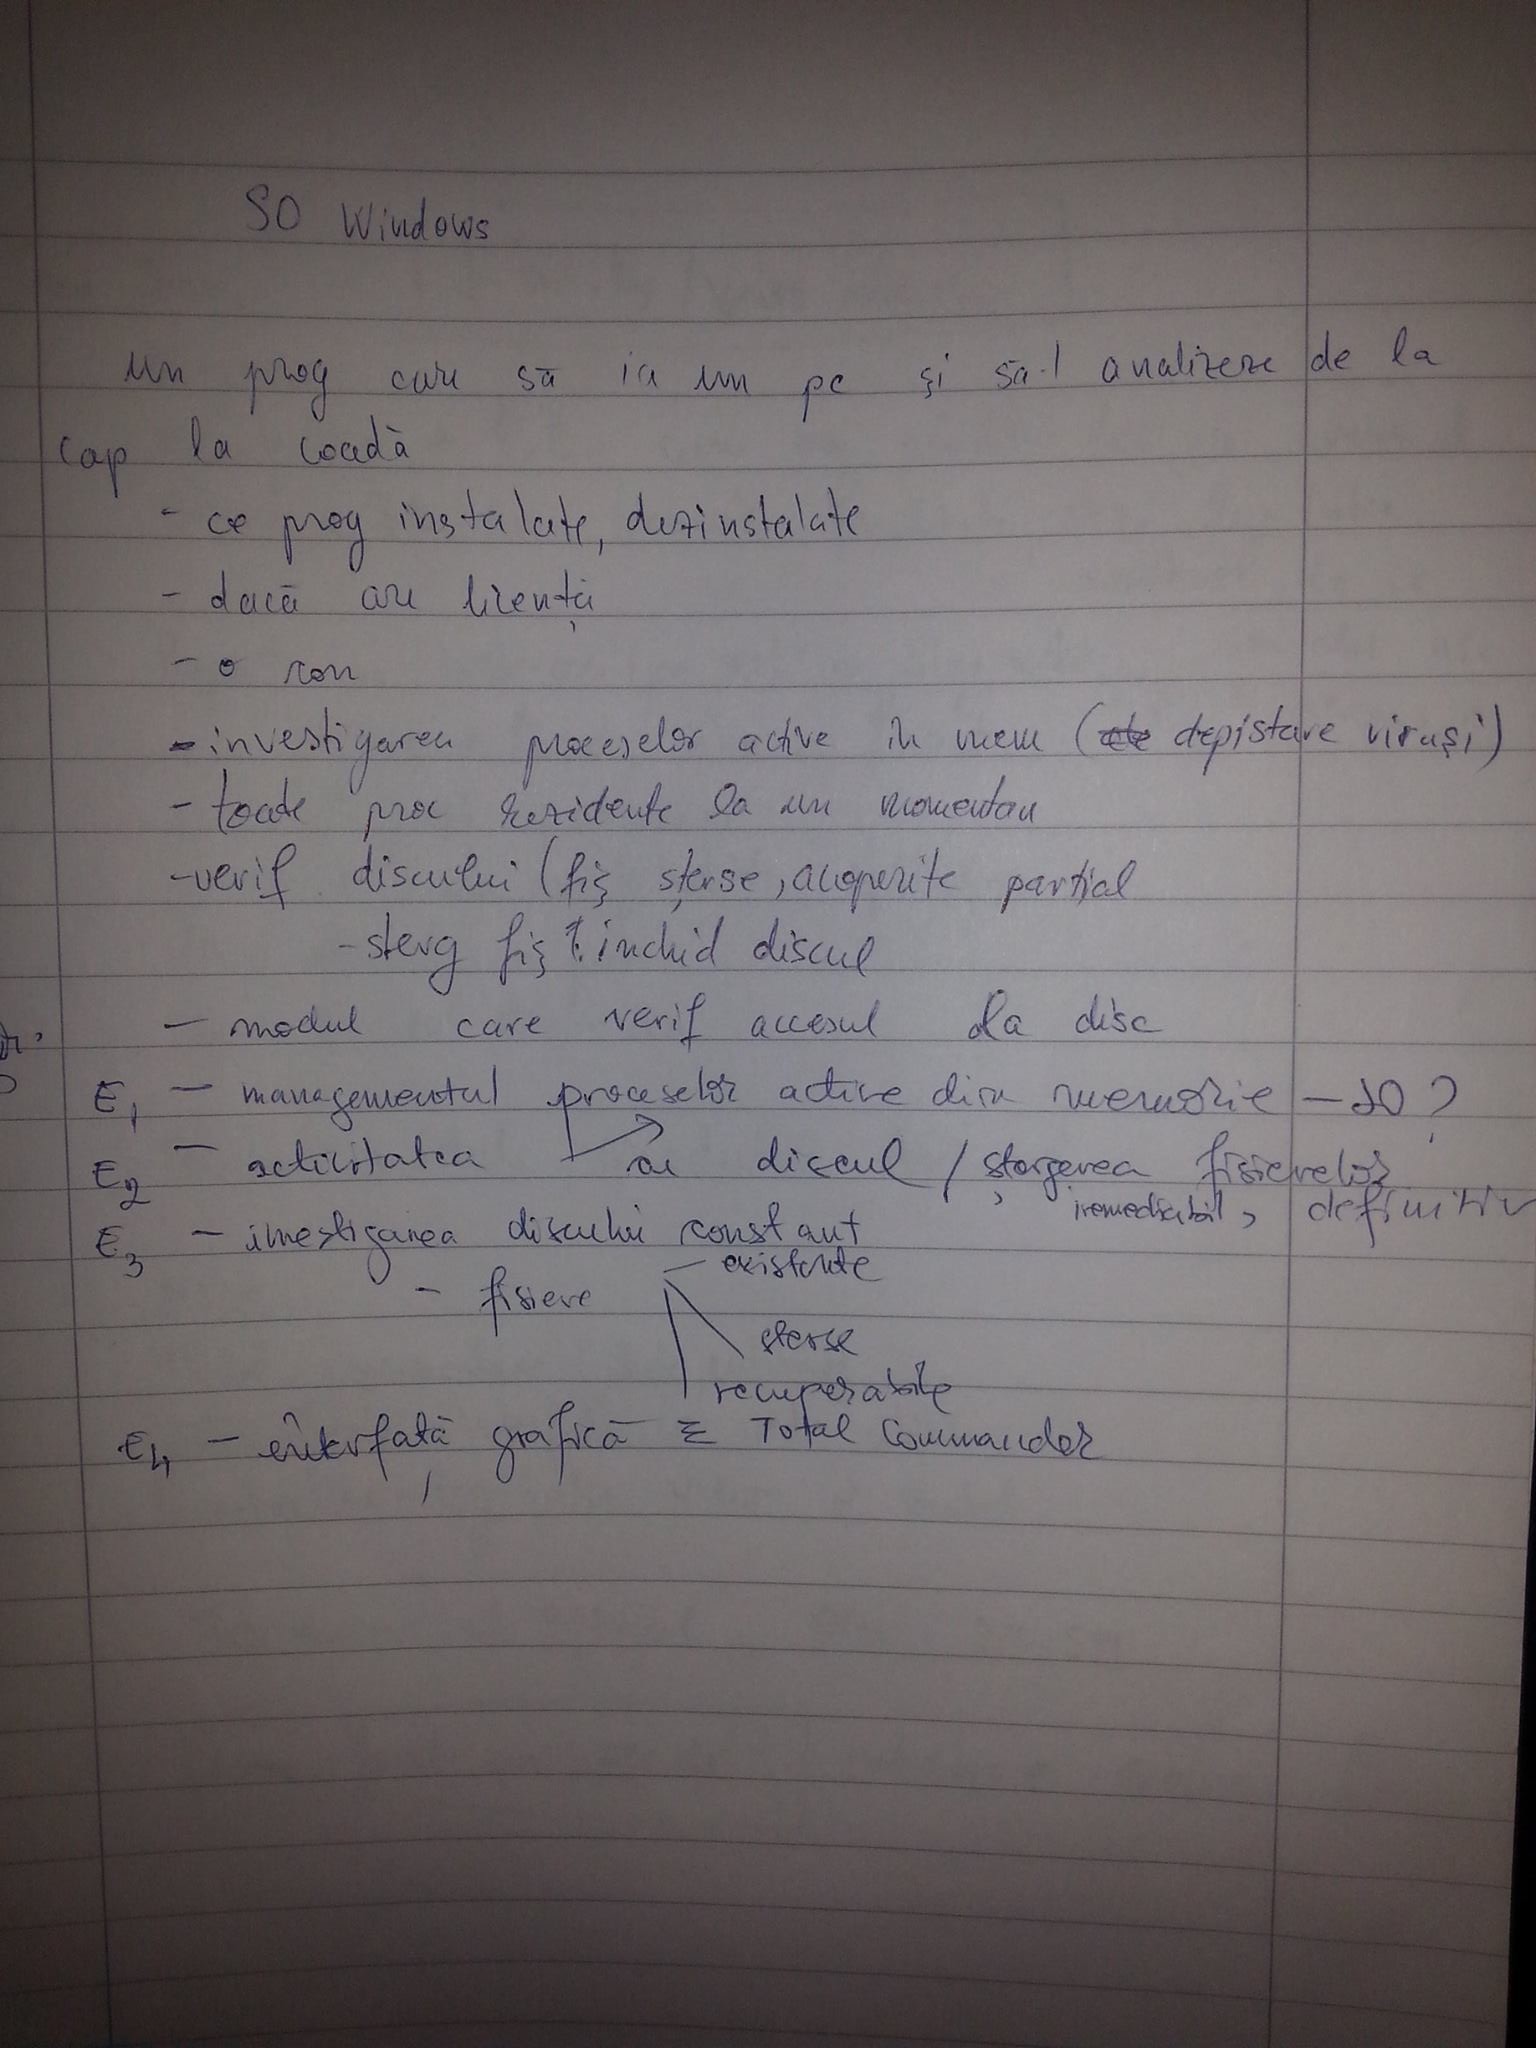 SO Windows
un prog care să ia un pc și să-l analizeze de la
cap la coadă
- ce prog instalate, dezinstalate
- dacă are licență
- o
- investigarea proceselor active în mem (depistare viruși)
- toate proc rezidente la un momentan
- verif discului (fiș șterse, acoperite parțial
- sterg fiș închid discul
- modul care verif accesul la disc
E1 - managementul proceselor active din memorie - 10?
E2 - activitatea cu discul / ștergerea fisierelor
iremediabil, definitiv
E3 - investigarea discului constant
- existente
- fisiere
sterse
recuperabile
E4 - interfață grafică ≡ Total Commander